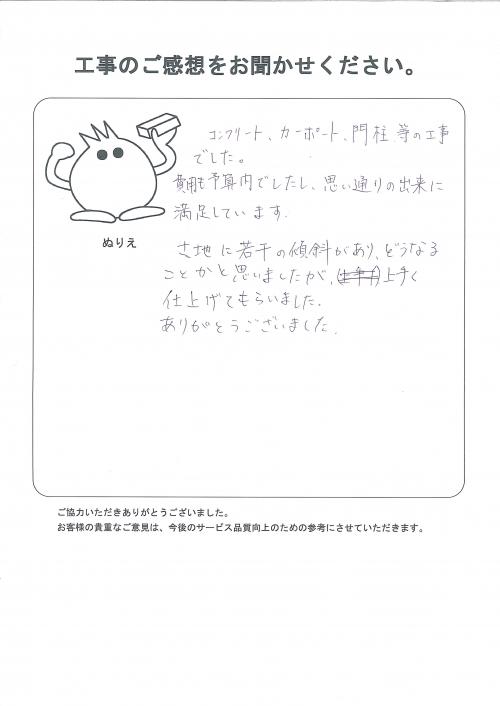 工事のご感想をお聞かせください。
コンクリート、カーポート、門柱 等の工事
でした。
費用も予算内でしたし、思い通りの出来に
満足しています。
ぬりえ
土地に若干の傾斜があり、どうなる
ことかと思いましたが、上手く
仕上げてもらいました。
ありがとうございました。
ご協力いただきありがとうございました。
お客様の貴重なご意見は、今後のサービス品質向上のための参考にさせていただきます。